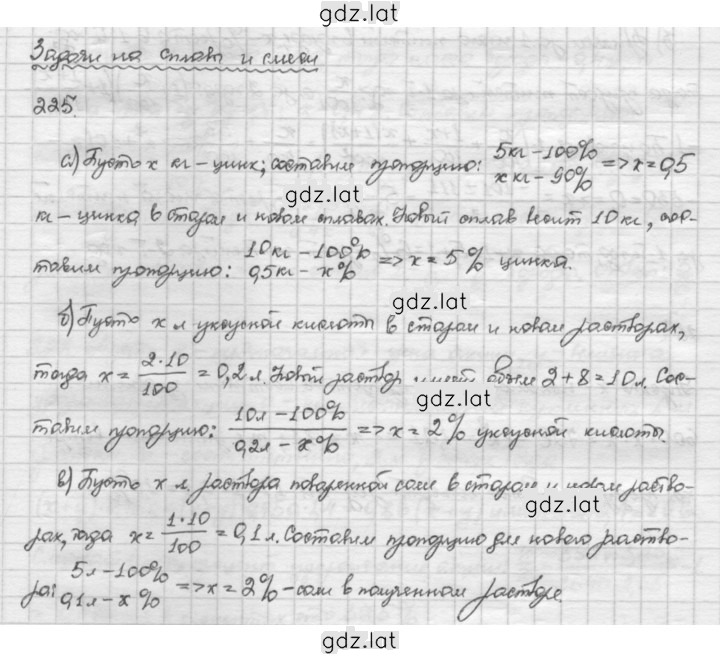 gdz.lat
Задачи на сплавы и смеси
225.
а) Пусть x кг – цинк; составим пропорцию: 5кг – 100% xкг – 90% => x = 0,5
gdz.lat
кг – цинка в старом и новом сплавах. Новый сплав весит 10 кг, сос-
тавим пропорцию: 10кг – 100% 0,5кг – x% => x = 5% цинка.
gdz.lat
б) Пусть x л уксусной кислоты в старом и новом растворах,
тогда x = 2·10/100 = 0,2 л. Новый раствор имеет объем 2 + 8 = 10 л. Сос-
gdz.lat
тавим пропорцию: 10л – 100% 0,2л – x% => x = 2% уксусной кислоты.
в) Пусть x л раствора поваренной соли в старом и новом раство-
gdz.lat
рах, тогда x = 1·10/100 = 0,1 л. Составим пропорцию для нового раство-
ра: 5л – 100% 0,1л – x% => x = 2% – соли в полученном растворе.
gdz.lat